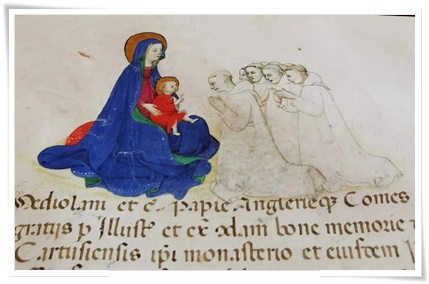 Mediolani et c̄ Papie Anglerieq3 Comes
gratijs p Illustꝭ et ex̄ dām bone memorie
Cartusiensis ip̄i monasterio et eiusdem